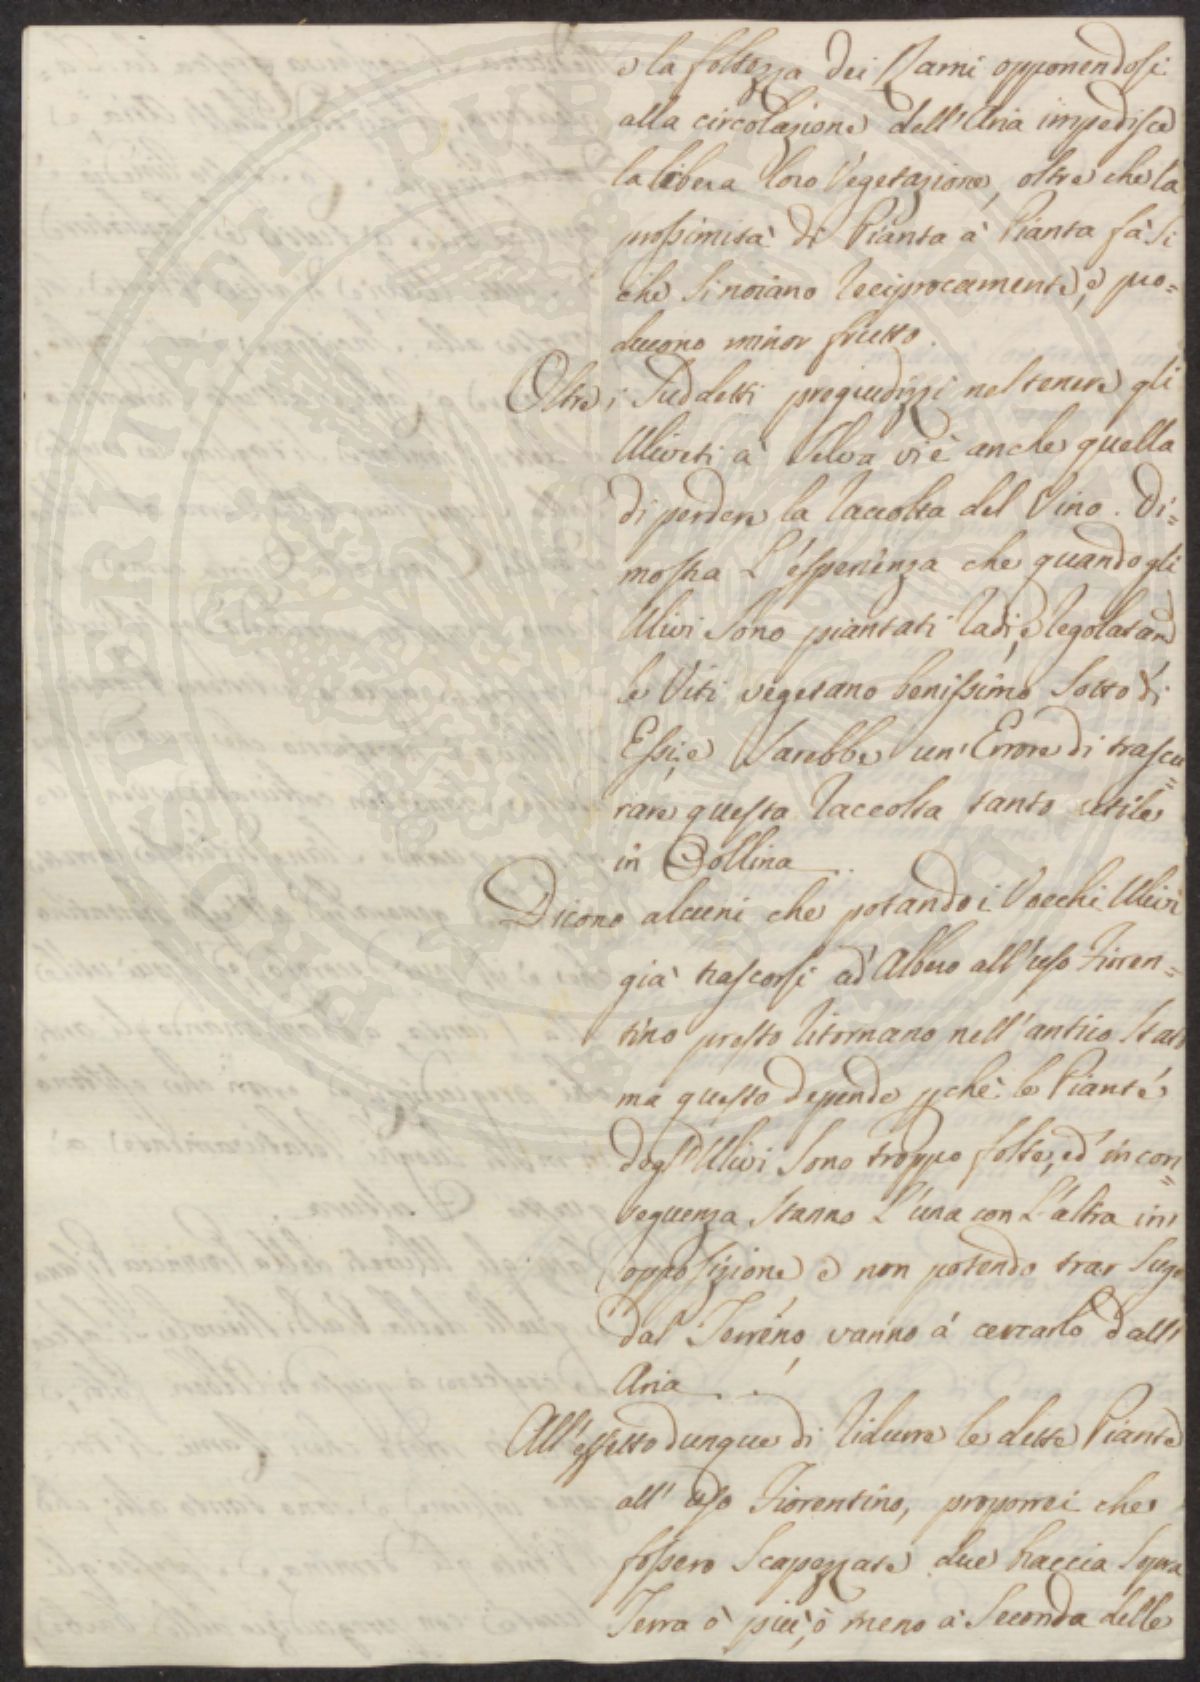 e la foltezza dei Rami opponendosi
alla circolazione dell'Aria impedisce
la libera loro Vegetazione, oltre che la
prossimità di Pianta à Pianta fà si
che si noiano reciprocamente, e pro=
ducono minor frutto.
Oltre i suddetti pregiudizzi nel tenere gli
Uliveti à Selva vi è anche quella
di perdere la raccolta del Vino. Di=
mostra L'esperienza che quando gli
Ulivi sono piantati radi, e regolatam
le Viti vegetano benissimo sotto di
Essi, e Sarebbe un'Errore di trascu=
rare questa raccolta tanto utile
in Collina.
Dicono alcuni che potando i Vecchi Ulivi
già trascorsi ad Albero all'uso Fioren=
tino presto ritornano nell'antico Stato
ma questo depende pche le Piante
degl'Ulivi Sono troppo folte, ed in con=
seguenza Stanno L'una con L'altra in
opposizione e non potendo trar Sugo
dal Terreno vanno à cercarlo dall'
Aria.
All'effetto dunque di ridurre le dette Piante
all'uso Fiorentino, proporrei che
fossero Scapezzate due braccia Sopra
Terra ò più, ò meno à Seconda delle
PROSPERITATI PUBLICAE AUGENDAE